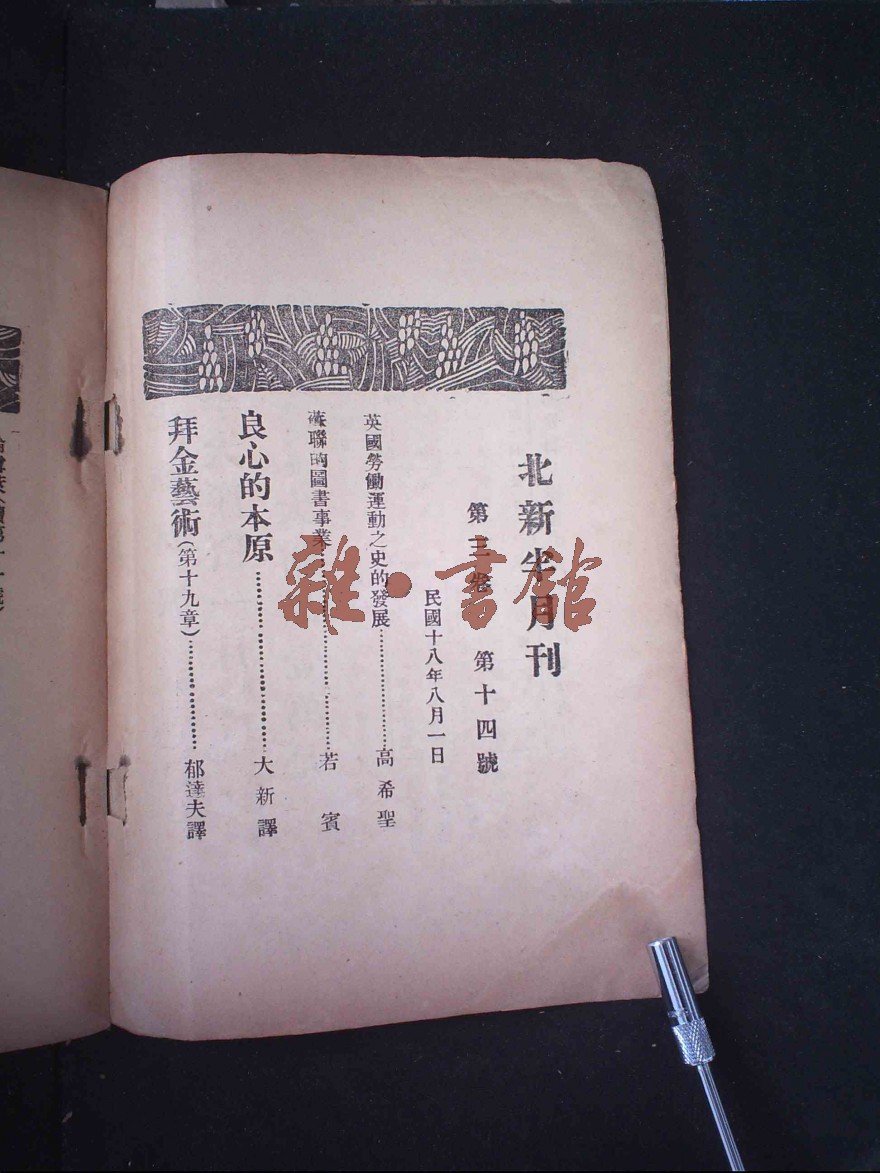 北新半月刊
第三卷 第十四號
民國十八年八月一日
英國勞働運動之史的發展……………高希聖
蘇聯的圖書事業……………若賓
良心的本原……………大新譯
拜金藝術(第十九章)……………郁達夫譯
雜·書館